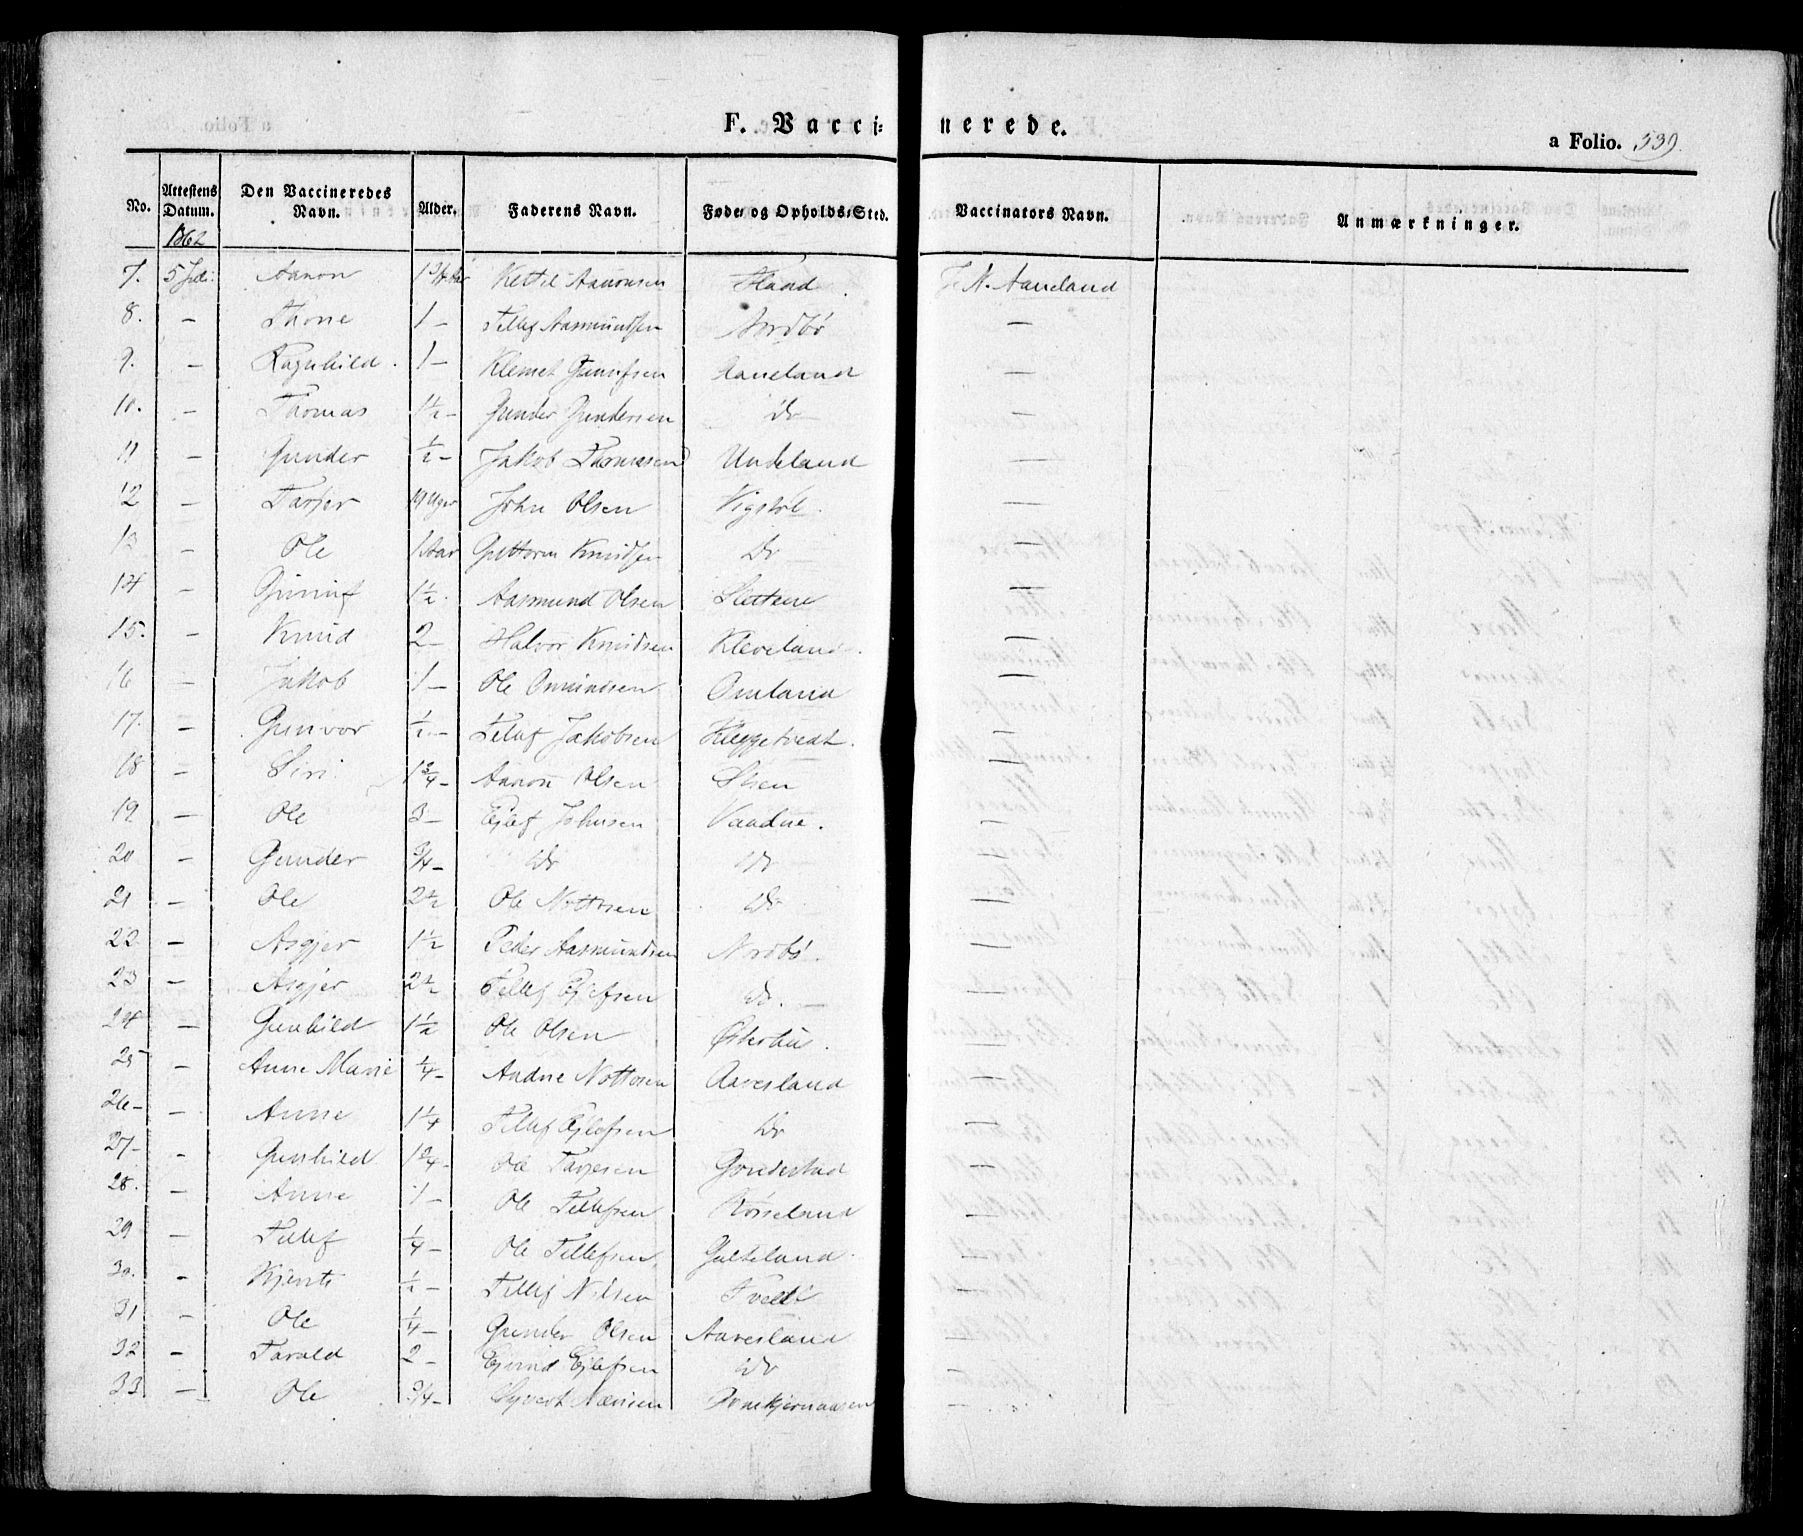 F. Vacci- nerede.
a Folio. 539.
No. Attestens Datum. Den Vaccineredes Navn. Alder. Faderens Navn. Føde- og Opholds-Sted. Vaccinators Navn. Anmærkninger.
1862
7. 5 Juli Aanon 1 3/4 Aar Kettil Aanonsen Haad J. N. Aaneland
8. — Thone 1 — Tellef Aasmundsen Nordbø —
9. — Ragnhild 1 — Klemet Gunufsen Haneland —
10. — Thomas 1 1/2 — Gunder Gundersen Do —
11 — Gunder 1/2 — Jakob Thomasen Undeland —
12 — Tarjer 19 Uger John Olsen Vigstøl —
13 — Ole 1 Aar Guttorm Knudsen Do —
14 — Gunuf 1 1/2 Aasmund Olsen —
15. — Knud 2 — Halvor Knudsen Kleveland —
16 — Jakob 1 — Ole Omundsen Omland —
17. — Gunvor 1/2 — Tellef Jakobsen Heggetvedt —
18 — Siri 1 3/4 — Aanon Olsen —
19 — Ole 3 — Ejlef Johnsen Vaadne —
20 — Gunder 3/4 — Do Do —
21 — Ole 2 1/2 Ole Nottosen Do —
22 — Asgjer 1 1/2 Peder Aasmundsen Nordbø —
23 — Asgjer 2 1/2 Tellef Ejlefsen Do —
24 — Gunhild 1 1/2 Ole Olsen Østerhus —
25 — Anne Marie 1/4 — Nottosen Aavesland —
26 — Anne 1 1/4 Tellef Ejlefsen Do —
27 — Gunhild 1 3/4 — Ole Tarjesen —
28. — Anne 1 — Ole Tellefsen —
29 — Tellef 1/4 — Ole Tellefsen Galteland —
30. — 1/2 — Tellef Nilsen Tvedt —
31 — Ole 1/4 — Gunder Olsen Aavesland —
32 — Tarald 2 — Ejvind Ejlefsen Do —
33 — Ole 3/4 — Syvert —